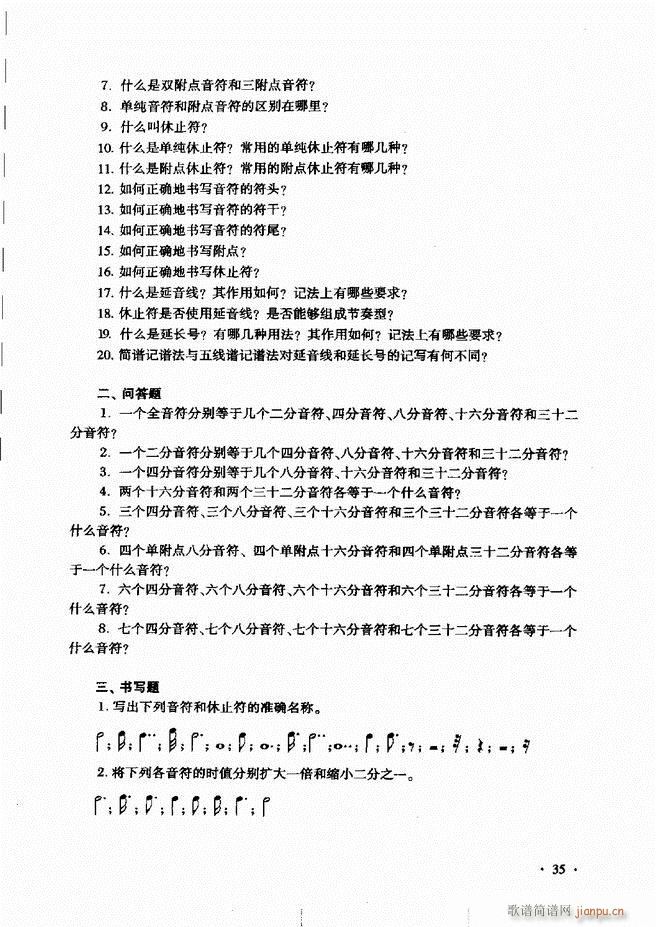 7. 什么是双附点音符和三附点音符?
8. 单纯音符和附点音符的区别在哪里?
9. 什么叫休止符?
10. 什么是单纯休止符? 常用的单纯休止符有哪几种?
11. 什么是附点休止符? 常用的附点休止符有哪几种?
12. 如何正确地书写音符的符头?
13. 如何正确地书写音符的符干?
14. 如何正确地书写音符的符尾?
15. 如何正确地书写附点?
16. 如何正确地书写休止符?
17. 什么是延音线? 其作用如何? 记法上有哪些要求?
18. 休止符是否使用延音线? 是否能够组成节奏型?
19. 什么是延长号? 有哪几种用法? 其作用如何? 记法上有哪些要求?
20. 简谱记谱法与五线谱记谱法对延音线和延长号的记写有何不同?
二、问答题
1. 一个全音符分别等于几个二分音符、四分音符、八分音符、十六分音符和三十二
分音符?
2. 一个二分音符分别等于几个四分音符、八分音符、十六分音符和三十二分音符?
3. 一个四分音符分别等于几个八分音符、十六分音符和三十二分音符?
4. 两个十六分音符和两个三十二分音符各等于一个什么音符?
5. 三个四分音符、三个八分音符、三个十六分音符和三个三十二分音符各等于一个
什么音符?
6. 四个单附点八分音符、四个单附点十六分音符和四个单附点三十二分音符各等
于一个什么音符?
7. 六个四分音符、六个八分音符、六个十六分音符和六个三十二分音符各等于一个
什么音符?
8. 七个四分音符、七个八分音符、七个十六分音符和七个三十二分音符各等于一个
什么音符?
三、书写题
1. 写出下列音符和休止符的准确名称。
2. 将下列各音符的时值分别扩大一倍和缩小二分之一。
· 35 ·
歌谱简谱网 jianpu.cn